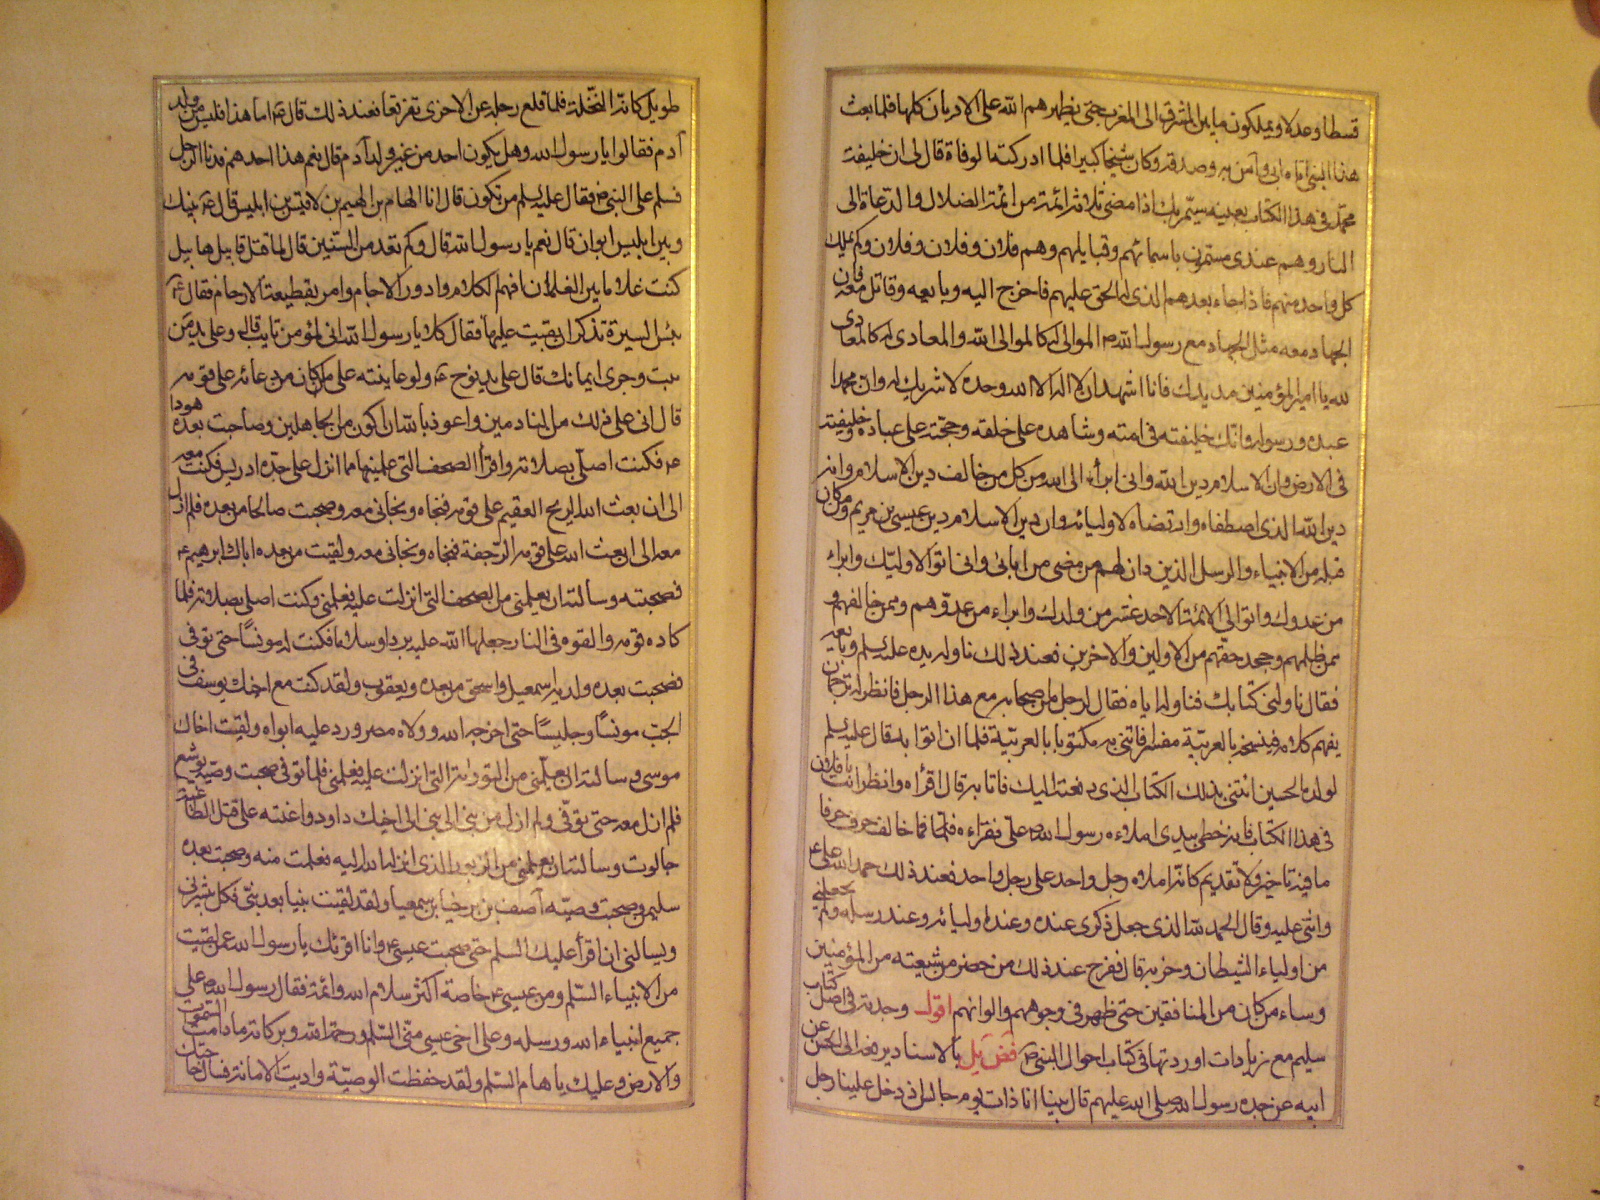 قسطا وعدلا ويملكون ما بين المشرق الى المغرب حتى يظهرهم الله على الاديان كلها فلما بعث
هذا النبي اتاه ابي وآمن به وصدقه وكان شيخا كبيرا فلما ادركته الوفاة قال لي ان خليفة
محمد في هذا الكتاب بعينه سيمر بك اذا مضى ثلاثة ائمة من ائمة الضلال والدعاة الى
النار وهم عندي مسمون باسمائهم وقبايلهم وهم فلان وفلان وفلان وكم يملك
كل واحد منهم فاذا جاء بعدهم الذي له الحق عليهم فاخرج اليه وبايعه وقاتل معه فان
الجهاد معه مثل الجهاد مع رسول الله ص الموالي له كالموالي الله والمعادي له كالمعادي
لله يا امير المؤمنين مد يدك فانا اشهد ان لا اله الا الله وحده لا شريك له وان محمدا
عبده ورسوله وانك خليفته في امته وشاهده على خلقه وحجته على عباده وخليفته
في الارض وان الاسلام دين الله واني ابرأ الى الله من كل من خالف دين الاسلام وانه
دين الله الذي اصطفاه وارتضاه لاوليائه وان دين الاسلام دين عيسى بن مريم ومن كان
قبله من الانبياء والرسل الذين دان لهم من مضى من ابائي واني اتولاك واتولى وليك وابراء
من عدوك واتوالى الائمة الاحد عشر من ولدك وابراء من عدوهم وممن خالفهم و
ممن ظلمهم وجحد حقهم من الاولين والاخرين فعند ذلك ناوله يده عليه السلم وبايعه
فقال ناولني كتابك فناوله اياه فقال لرجل من صحابه مع هذا الرجل فانظر له ترجمان
يفهم كلامه فينسخه بالعربية مفسرا فاتني به مكتوبا بالعربية فلما ان اتوا به قال عليه السلم
لولده الحسين ائتني بذلك الكتاب الذي دفعته اليك فاتا به قال اقرأه وانظر انت يا فلان
في هذا الكتاب فانه خطي بيدي املاءه رسول الله ص علي فقراءه فلما فما خالف حرف حرفا
ما فيه تاخير ولا تقديم كانه املاه رجل واحد على رجل واحد فعند ذلك حمد الله علي ع
واثنى عليه وقال الحمد لله الذي جعل ذكري عنده وعند اوليائه وعند رسله ولم يجعلني
من اولياء الشيطان وحزبه قال ففرح عند ذلك من حضر من شيعته من المؤمنين
وساء من كان من المنافقين حتى ظهر في وجوههم والوانهم اقول وجدته في اصل كتاب
سليم مع زيادات اوردتها في كتاب احوال النبي ص فض يل بالاسناد يرفعه الى الحسن عن
ابيه عن جده رسول الله صلى الله عليهم قال بينا انا ذات يوم جالس اذ دخل علينا رجل
طويل كانه النخلة فلما قلع رجله عن الاخرى تفرقعا فعند ذلك قال ع اما هذا فليس من ولد
آدم فقالوا يا رسول الله وهل يكون احد من غير ولد آدم قال نعم هذا احدهم فدنا الرجل
فسلم على النبي ص فقال عليه السلم من تكون قال انا الهام بن الهيم بن لاقيس بن ابليس قال ع بينك
وبين ابليس ابوان قال نعم يا رسول الله قال وكم تعد من السنين قال لما قتل قابيل هابيل
كنت غلاما بين الغلمان افهم الكلام وادور الاجام وامر بقطيعة الارحام فقال ع
بئس السيرة تذكر ان بقيت عليها فقال كلا يا رسول الله اني لمؤمن تايب قال وعلى يد من
تبت وجرى ايمانك قال على يد نوح ع ولو عاينته على ما كان من دعائه على قومه
قال اني على ذلك من النادمين واعوذ بالله ان اكون من الجاهلين وصاحبت بعده هودا
ع فكنت اصلي بصلاته واقرأ الصحف التي علمنيها مما انزل على جده ادريس فكنت معه
الى ان بعث الله الريح العقيم على قومه فنجاه ونجاني معه وصحبت صالحا من بعده فلم ازل
معه الى ان بعث الله على قومه الرجفة فنجاه ونجاني معه ولقيت من بعده اباك ابرهيم ع
فصحبته وسالته ان يعلمني من الصحف التي انزلت عليه فعلمني وكنت اصلي بصلاته فلما
كاده قومه والقوه في النار جعلها الله عليه بردا وسلاما فكنت له مونسا حتى توفي
فصحبت بعده ولديه اسمعيل واسحق من بعده ويعقوب ولقد كنت مع اخيك يوسف في
الجب مونسا وجليسا حتى اخرجه الله وولاه مصر ورد عليه ابواه ولقيت اخاك
موسى وسالته ان يعلمني من التورية التي انزلت عليه فعلمني فلما توفي صحبت وصيه يوشع
فلم ازل معه حتى توفي ولم ازل من نبي الى نبي الى اخيك داود واعنته على قتل الطاغية
جالوت وسالته ان يعلمني من الزبور الذي انزله الله اليه فعلمت منه وصحبت بعده
سليمن وصحبت وصيه آصف بن برخيا بن سمعيا ولقد لقيت نبيا بعد نبي فكل يبشرني
ويسالني ان اقرأ عليك السلم حتى صحبت عيسى ع وانا اقرئك يا رسول الله عمن لقيت
من الانبياء السلم ومن عيسى ع خاصة اكثر سلام الله واتمه فقال رسول الله ص على
جميع انبياء الله ورسله وعلى اخي عيسى مني السلم ورحمة الله وبركاته ما دامت السموات
والارض وعليك يا هام السلم ولقد حفظت الوصية واديت الامانة فسال حاجتك